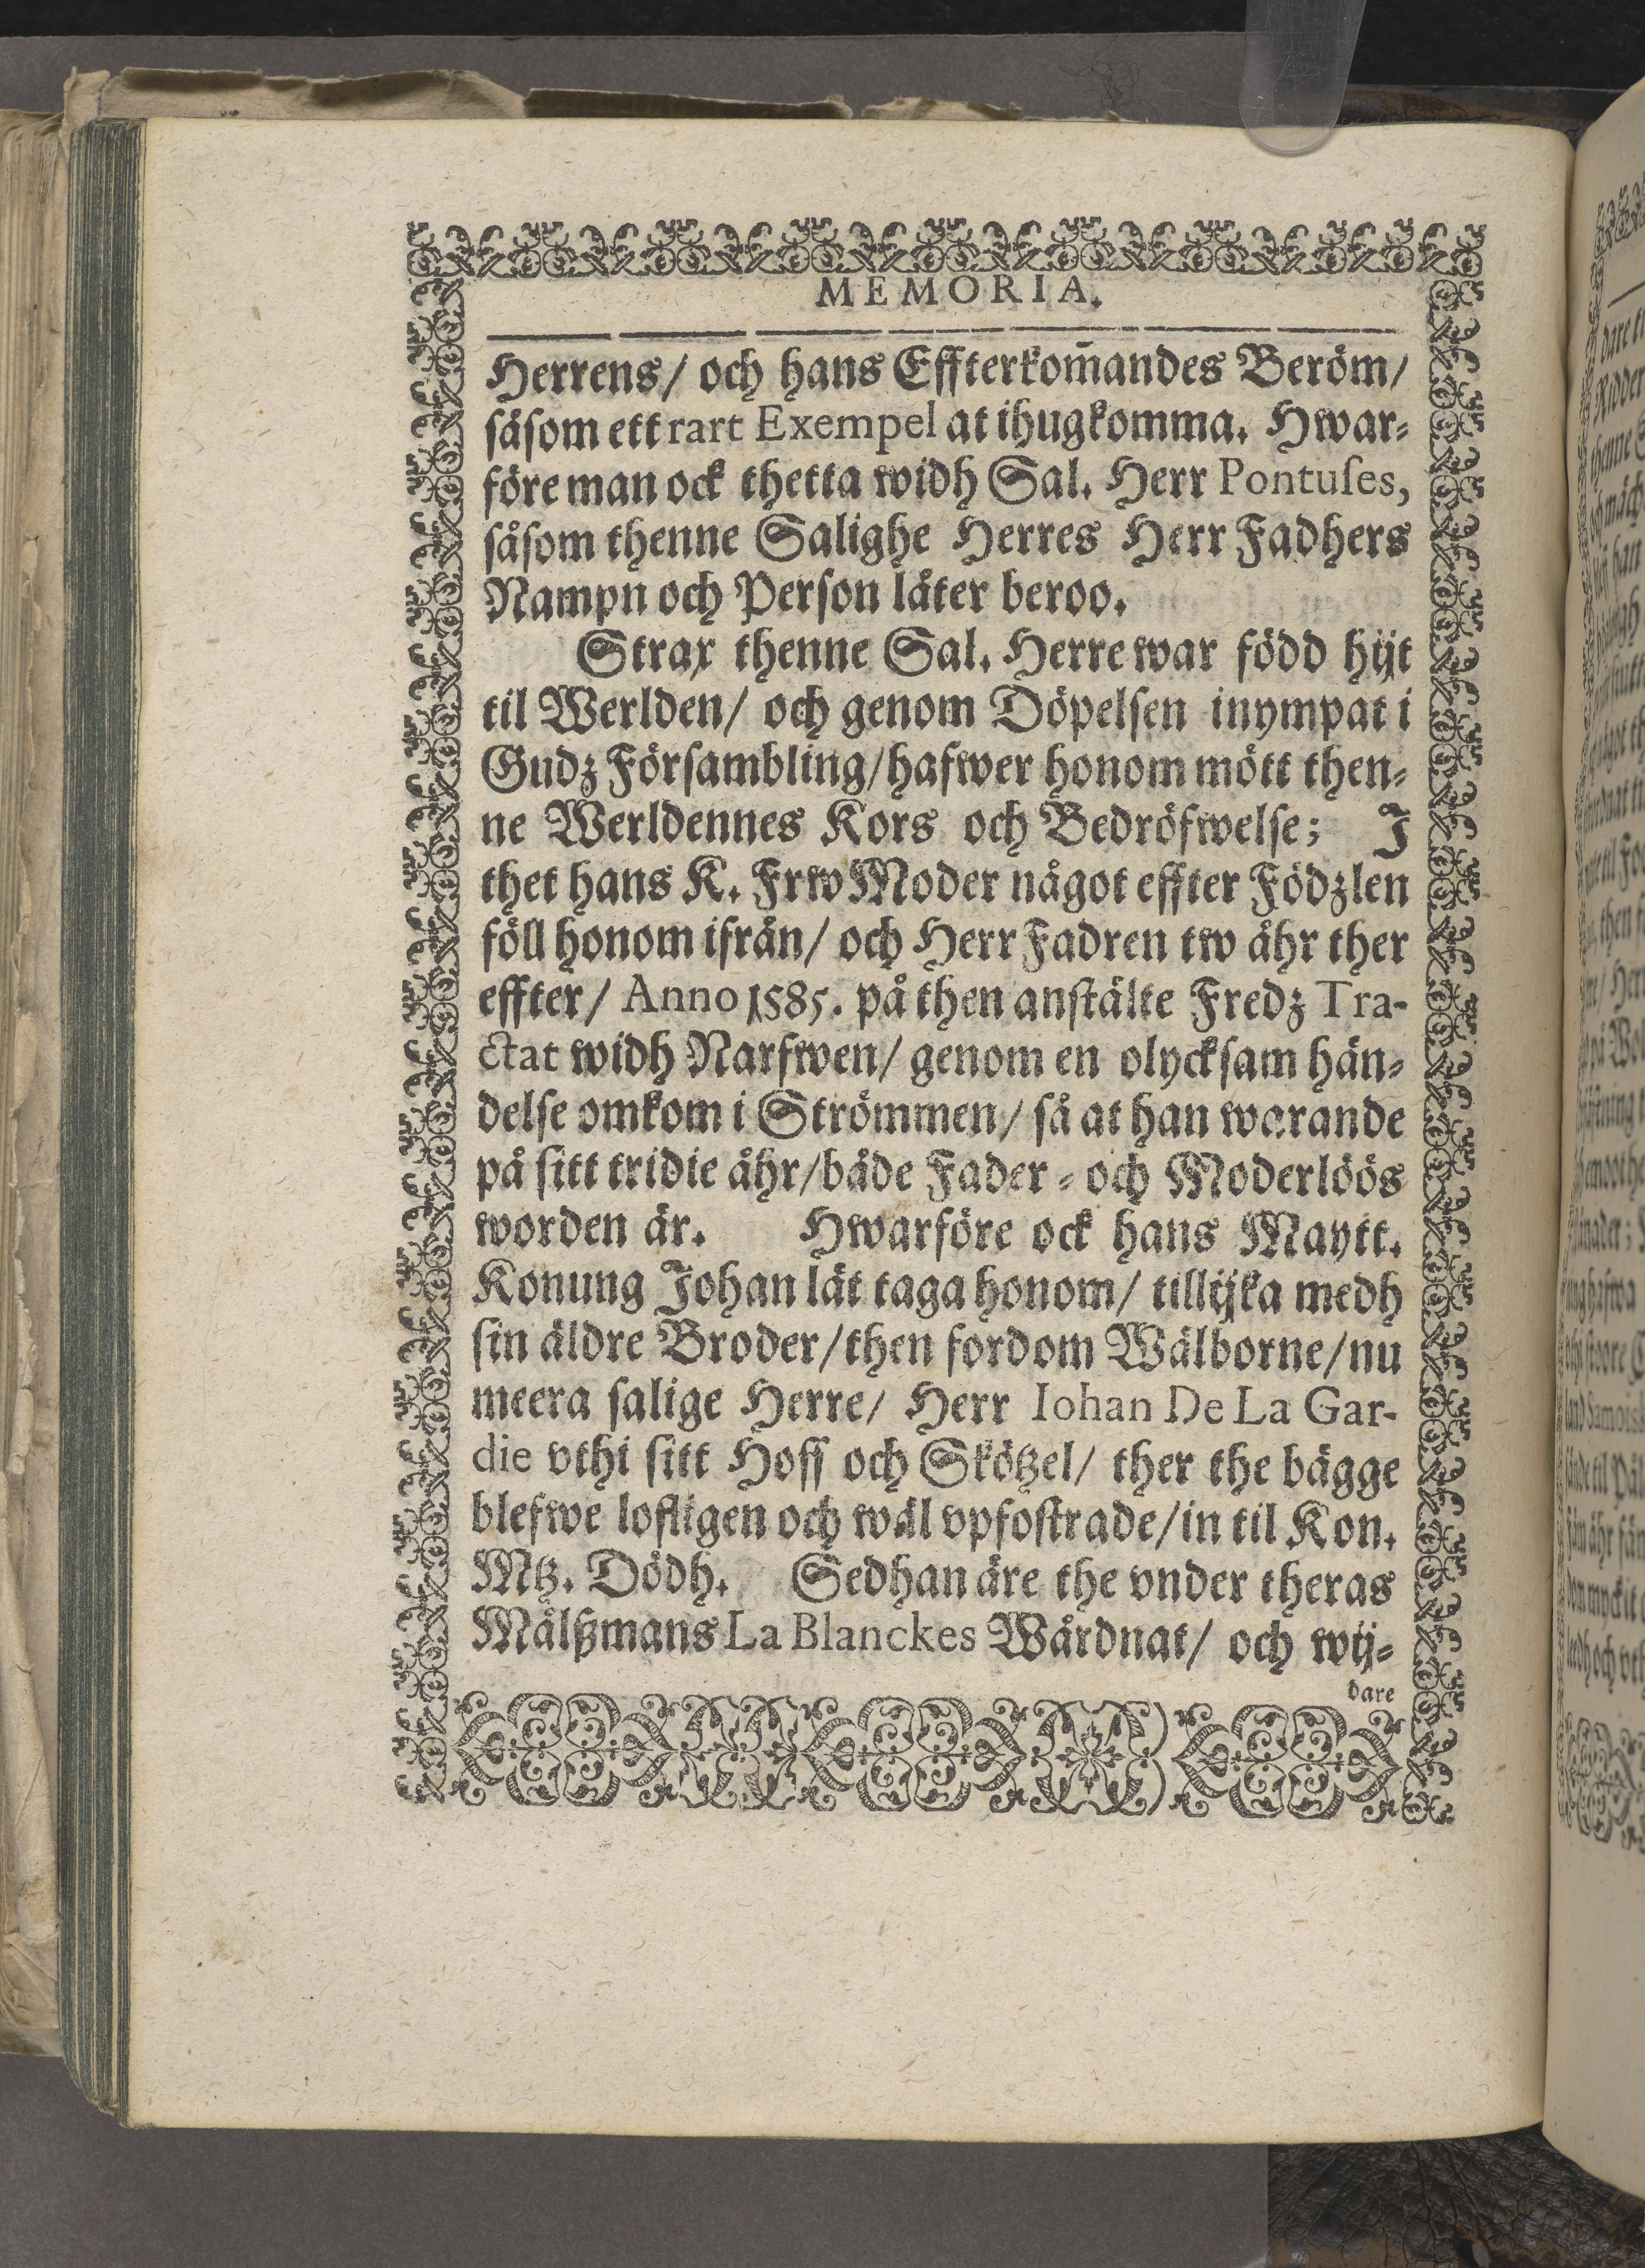 MEMORIA.
Herrens/ och hans Effterkom̃andes Beröm/
såsom ett rart Exempel at ihugkomma. Hwar-
före man ock thetta widh Sal. Herr Pontuſes,
såsom thenne Salighe Herres Herr Fadhers
Nampn och Person låter beroo.
Strax thenne Sal. Herre war född hijt
til Werlden/ och genom Döpelsen inympat i
Gudz Försambling/ hafwer honom mött then-
ne Werldennes Kors och Bedröfwelse; J
thet hans K. Frw Moder något effter Födzlen
föll honom ifrån/ och Herr Fadren tw åhr ther
effter/ Anno 1585. på then anstälte Fredz Tra-
ctat widh Narfwen/ genom en olycksam hän-
delse omkom i Strömmen/ så at han warande
på sitt tridie åhr/ både Fader - och Moderlöös
worden är. Hwarföre ock hans Maytt.
Konung Johan lät taga honom/ tillijka medh
sin äldre Broder/ then fordom Wälborne/ nu
meera salige Herre/ Herr Iohan De La Gar-
die vthi sitt Hoff och Skötzel/ ther the bägge
blefwe lofligen och wäl vpfostrade/ in til Kon.
Mtz. Dödh. Sedhan äre the vnder theras
Målßmans La Blanckes Wårdnat/ och wij-
dare